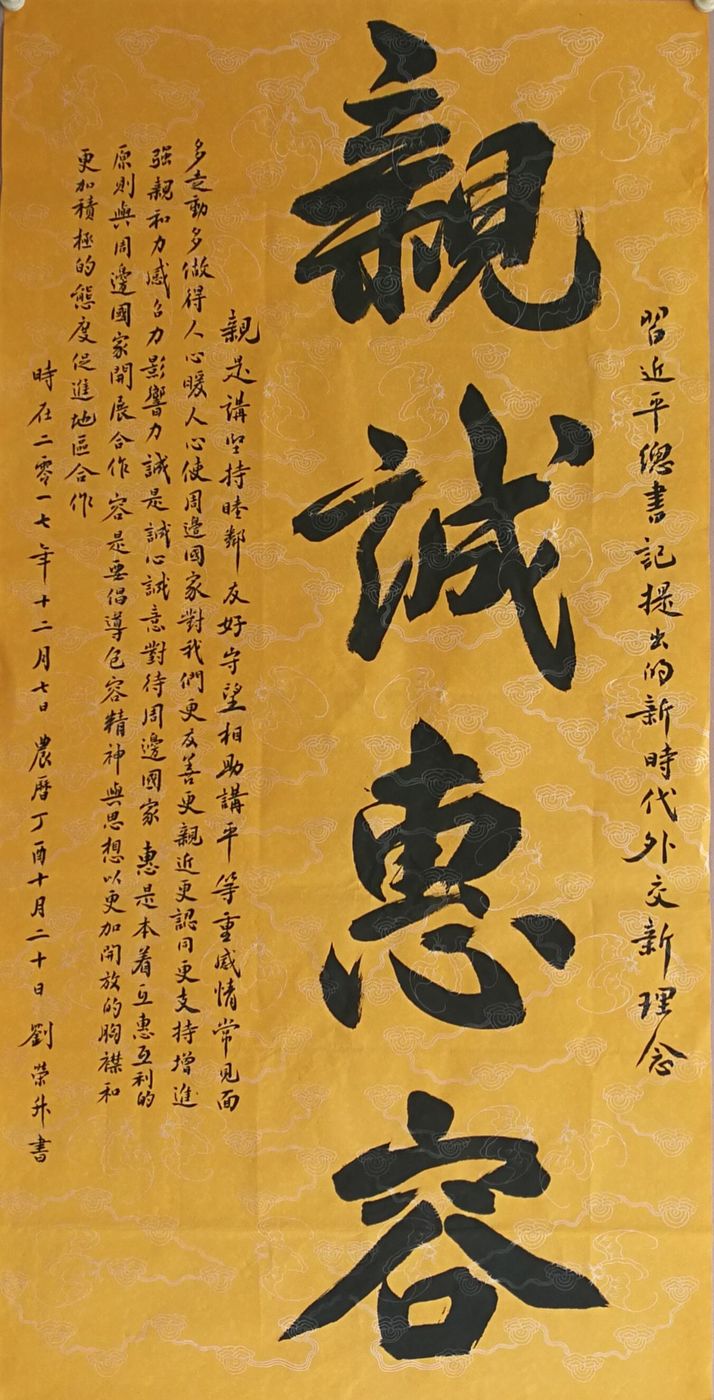 習近平總書記提出的新時代外交新理念
親誠惠容
親是講堅持睦鄰友好守望相助講平等重感情常見面
多走動多做得人心暖人心使周邊國家對我們更友善更親近更認同更支持增進
强親和力感召力影響力誠是誠心誠意對待周邊國家惠是本着互惠互利的
原則與周邊國家開展合作容是要倡導包容精神與思想以更加開放的胸襟和
更加積極的態度促進地區合作
時在二零一七年十二月七日農曆丁酉十月二十日劉榮升書